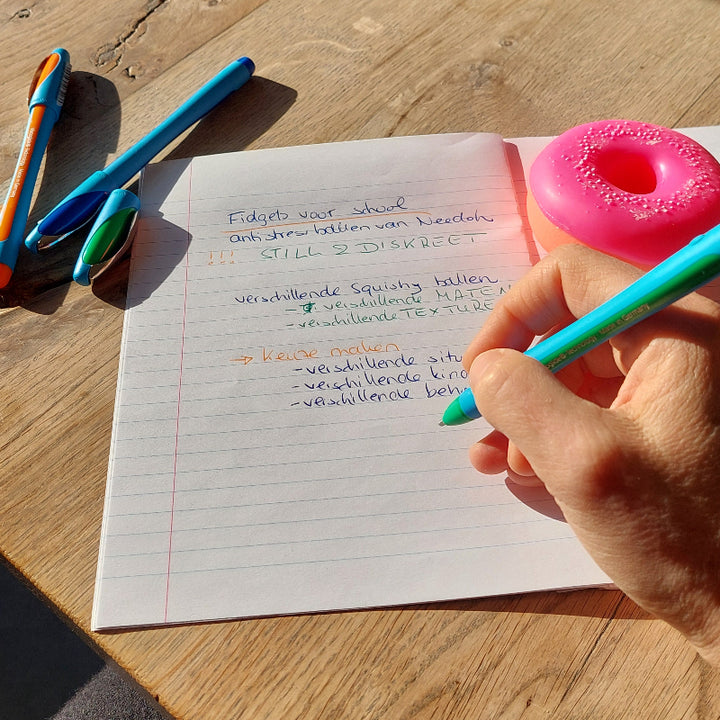 Fidgets voor school
antistressballen van Needoh
!!! STILL & DISKREET
verschillende Squishy ballen
- verschillende MATEN
- verschillende TEXTURE
→ keuze maken
- verschillende situ
- verschillende kind
- verschillende beh